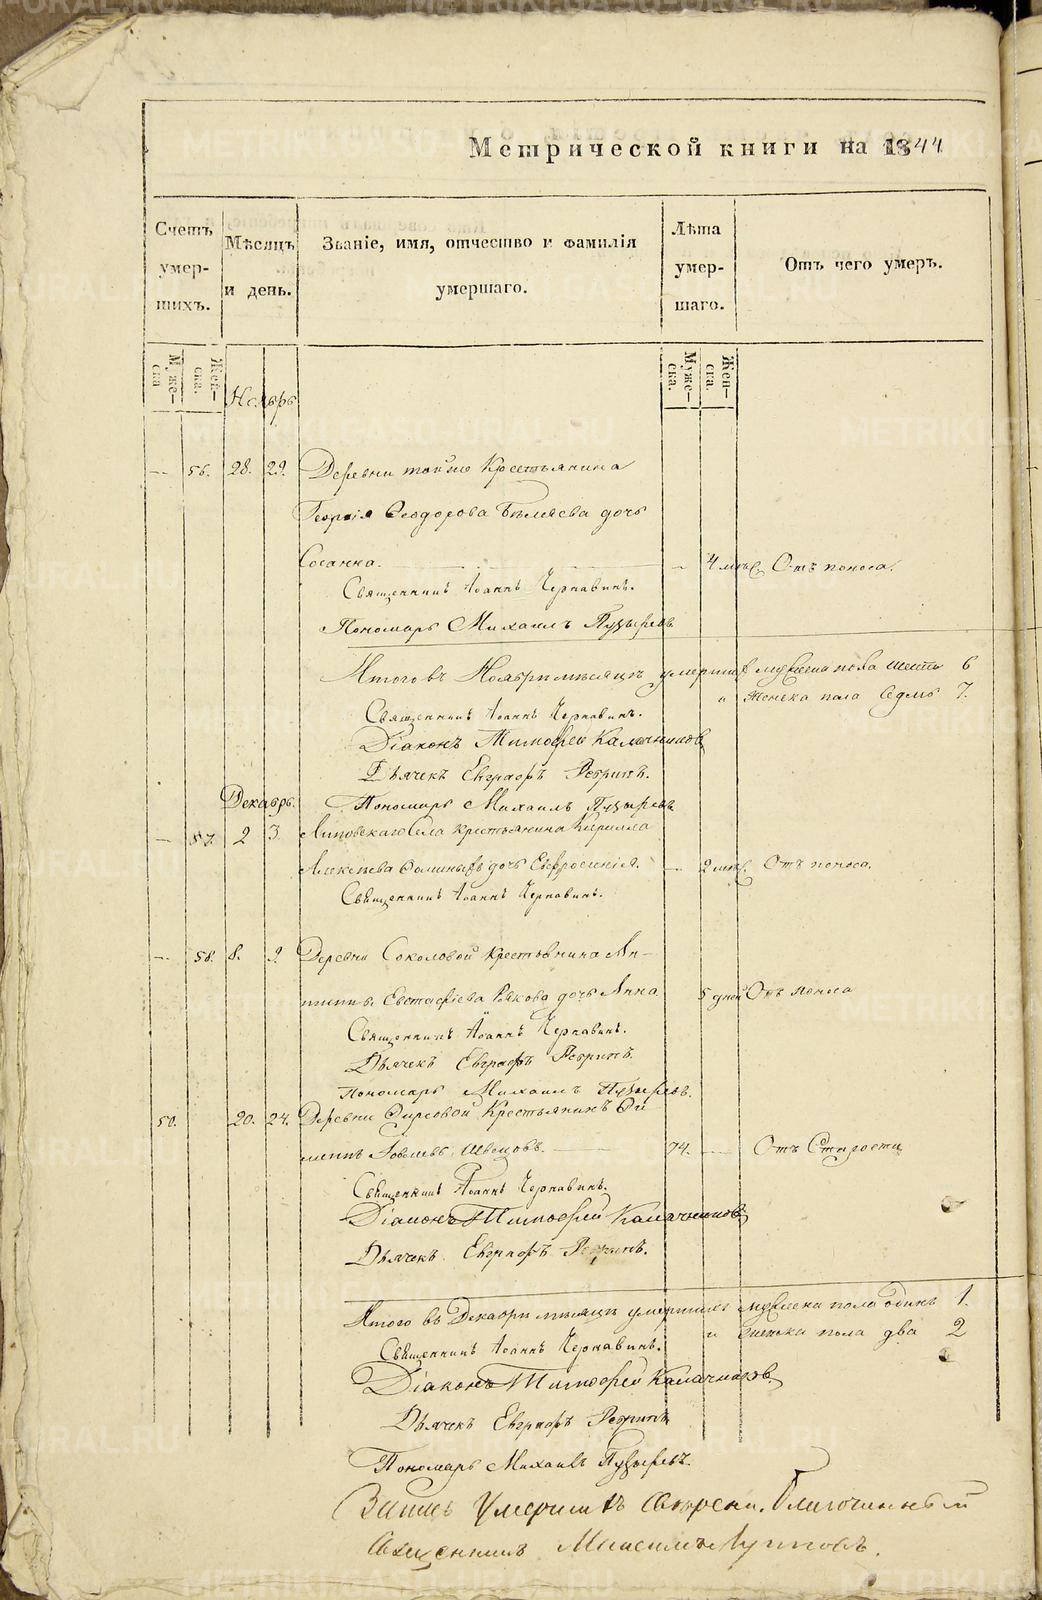 Метрической книги на 1844
Счетъ умер- шихъ.
Мѣсяцъ и день.
Званіе, имя, отчество и фамилія умершаго.
Лѣта умер- шаго.
Отъ чего умеръ.
Муже- ска
Жен- ска.
Муже- ска.
Жен- ска.
Ноябрь
— 56. 28. 29. Деревни тойже Крестьянина
Георгія Феодорова Бѣляева дочь
Сосанна. — 4 мѣс. Отъ поноса.
Священникъ Іоаннъ Чернавинъ.
Пономарь Михаилъ Пузыревъ
Итого въ Ноябрѣ мѣсяцѣ умершихъ мужеска пола шесть 6
и женска пола Седмь 7.
Священникъ Іоаннъ Чернавинъ.
Діаконъ Тимофей Калачниковъ
Дьячекъ Евграфъ Ребринъ.
Декабрь.
Пономарь Михаилъ Пузыревъ
— 57. 2 3 Липовскаго Села крестьянина Кирилла
Алексѣева Фоминыхъ дочь Евфросинія. — 2 мѣс. Отъ поноса.
Священникъ Іоаннъ Чернавинъ.
— 58. 8. 9. Деревни Соколовой Крестьянина Ни-
киты Евстафіева дочь Анна 5 дней Отъ поноса
Священникъ Іоаннъ Чернавинъ.
Дьячекъ Евграфъ Ребринъ.
Пономарь Михаилъ Пузыревъ.
50. 20. 24. Деревни Фирсовой Крестьянинъ
Швецовъ. — 74. — Отъ Старости
Священникъ Іоаннъ Чернавинъ.
Діаконъ Тимофей Калачниковъ
Дьячекъ Евграфъ Ребринъ.
Итого въ Декабрѣ мѣсяцѣ умершихъ мужеска пола одинъ 1.
и женска пола два 2
Священникъ Іоаннъ Чернавинъ.
Діаконъ Тимофей Калачниковъ.
Дьячекъ Евграфъ Ребринъ
Пономарь Михаилъ Пузыревъ.
Благочинный
Священникъ